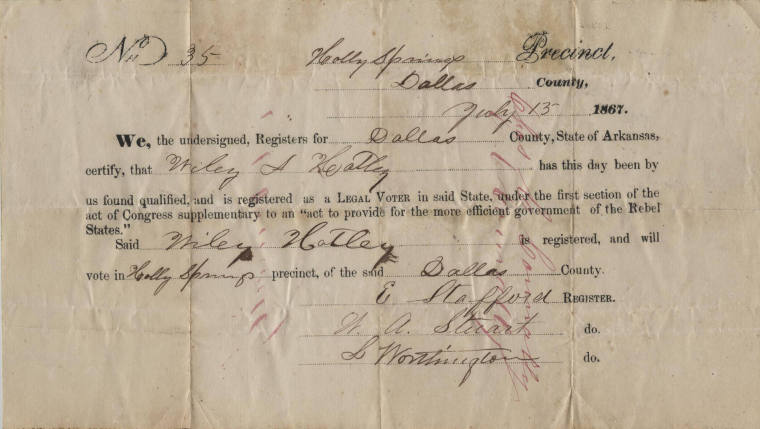 No 35 Holly Springs Precinct,
Dallas County,
July 15 1867.
We, the undersigned, Registers for Dallas County, State of Arkansas,
certify, that Wiley A Hatley has this day been by
us found qualified, and is registered as a LEGAL VOTER in said State, under the first section of the
act of Congress supplementary to an "act to provide for the more efficient government of the Rebel
States."
Said Wiley Hatley is registered, and will
vote in Holly Springs precinct, of the said Dallas County.
E Stafford REGISTER.
W. A. Stuart do.
L Worthington do.